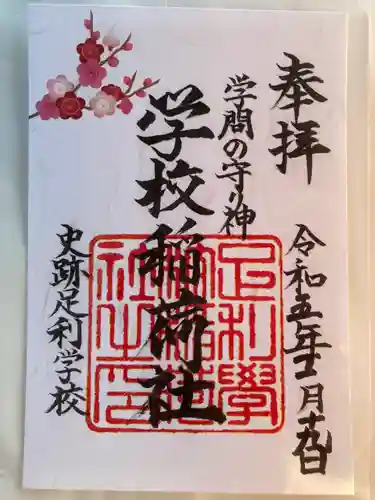 奉拝
令和五年十一月十九日
学問の守り神
学校稲荷社
史跡足利学校
足利學
社之印